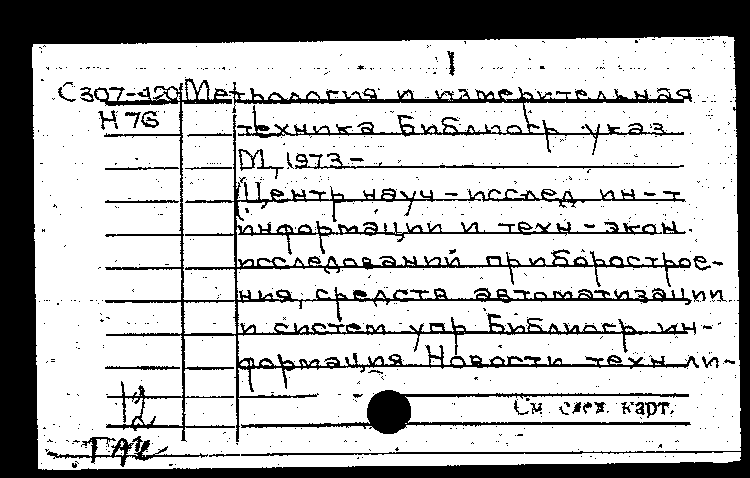 1
С307-420 Метрология и измерительная
Н76 техника Библиогр указ
М, 1973-
(Центр науч-исслед. ин-т
информации и техн-экон.
исследований приборострое-
ния, средств автоматизации
и систем упр Библиогр ин-
формация Новости техн ли-
12
См след. карт.